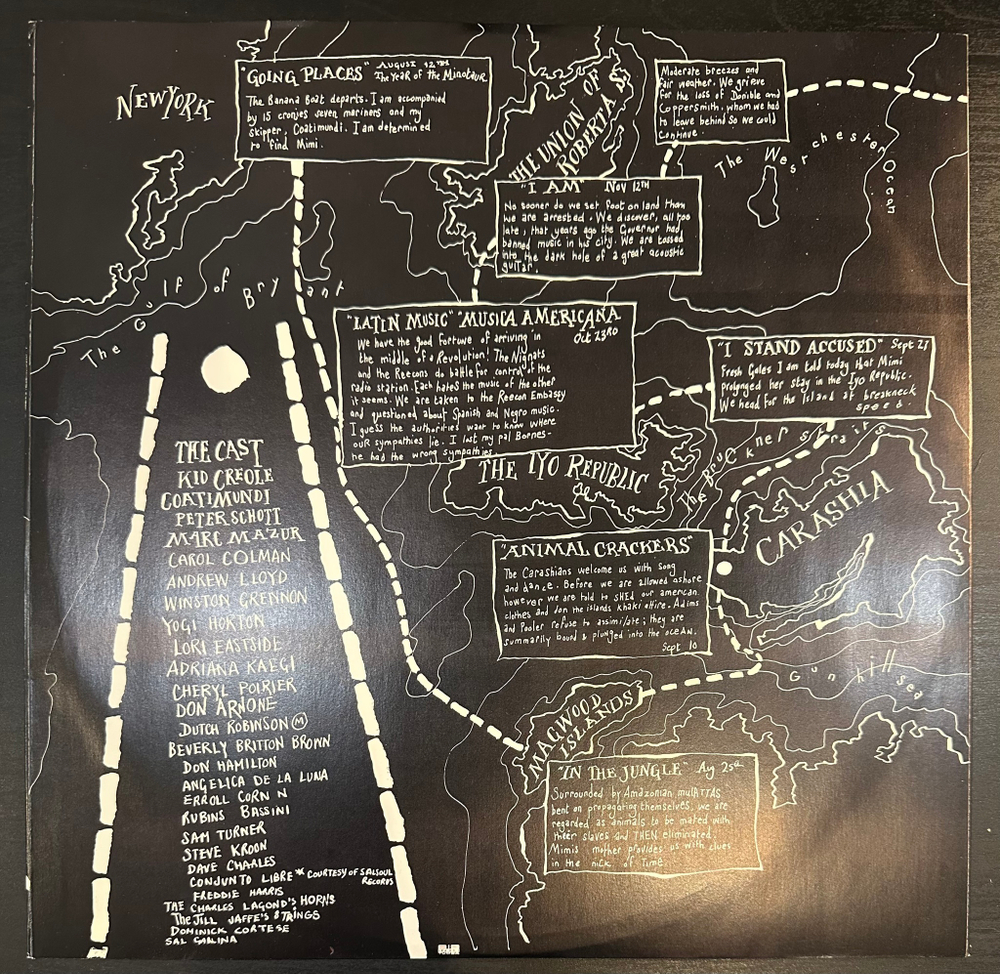 NEW YORK
"GOING PLACES" AUGUST 12TH
The Year of the Minotaur
The Banana Boat departs. I am accompanied
by 15 cronies seven mariners and my
skipper, Coatimundi. I am determined
to find Mimi.
THE UNION OF
ROBERTA S
Moderate breezes and
fair weather. We grieve
for the loss of Donible and
Coppersmith, whom we had
to leave behind so we could
continue.
The Westchester Ocean
"I AM" Nov 12TH
No sooner do we set foot on land than
we are arrested. We discover, all too
late, that years ago the Governor had
banned music in his city. We are tossed
into the dark hole of a great acoustic
guitar.
The Gulf of Bryant
"LATIN MUSIC" MUSICA AMERICANA
Oct 23RD
We have the good fortune of arriving in
the middle of a Revolution! The Nignats
and the Reecons do battle for control of the
radio station. Each hates the music of the other
it seems. We are taken to the Reecon Embassy
and questioned about Spanish and Negro music.
I guess the authorities want to know where
our sympathies lie. I lost my pal Bornes-
he had the wrong sympathies.
"I STAND ACCUSED" Sept 21
Fresh Gales I am told today that Mimi
prolonged her stay in the Iyo Republic.
We head for the Island at breakneck
speed.
THE IYO REPUBLIC
The Bruckner Straits
CARASHIA
"ANIMAL CRACKERS"
The Carashians welcome us with song
and dance. Before we are allowed ashore
however we are told to SHED our american
clothes and don the islands khaki attire. Adams
and Pooler refuse to assimilate; they are
summarily bound & plunged into the OCEAN.
Sept 10
Gun hill sea
MAGIWOOD
ISLANDS
"IN THE JUNGLE" Aug 25th
Surrounded by Amazonian mulATTAS
bent on propagating themselves, we are
regarded as animals to be mated with
their slaves and THEN eliminated.
Mimis mother provides us with clues
in the nick of time.
THE CAST
KID CREOLE
COATIMUNDI
PETER SCHOTT
MARC MAZUR
CAROL COLMAN
ANDREW LLOYD
WINSTON GRENNON
YOGI HORTON
LORI EASTSIDE
ADRIANA KAEGI
CHERYL POIRIER
DON ARNONE
DUTCH ROBINSON Ⓜ
BEVERLY BRITTON BROWN
DON HAMILTON
ANGELICA DE LA LUNA
ERROLL CORN N
RUBINS BASSINI
SAM TURNER
STEVE KROON
DAVE CHARLES
CONJUNTO LIBRE * COURTESY OF SALSOUL
RECORDS
FREDDIE HARRIS
THE CHARLES LAGOND'S HORNS
The JILL JAFFE'S STRINGS
DOMINICK CORTESE
SAL GALLINA